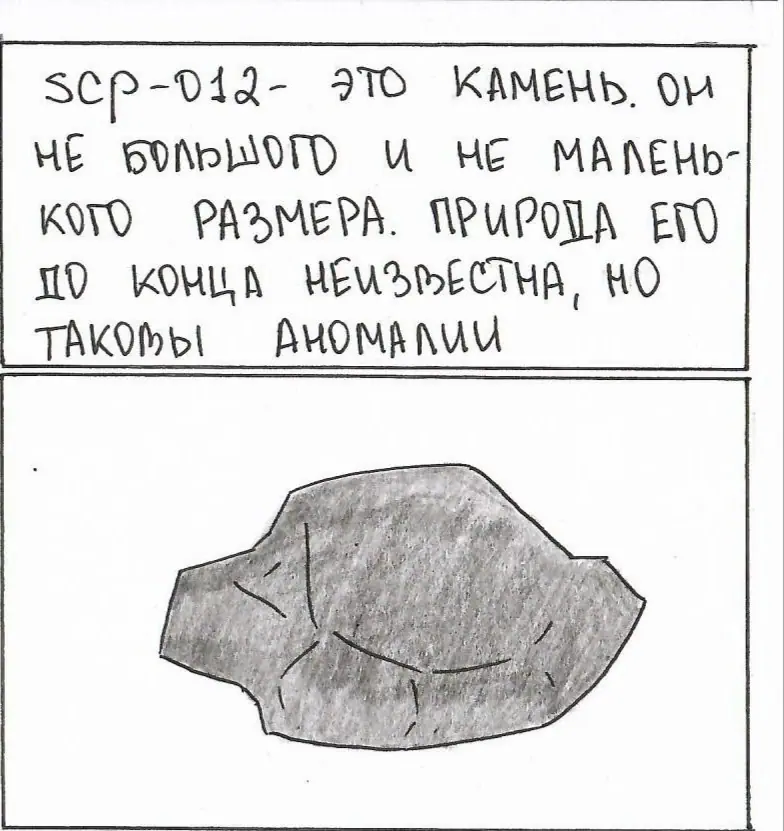 SCP-012- ЭТО КАМЕНЬ. ОН
НЕ БОЛЬШОГО И НЕ МАЛЕНЬ-
КОГО РАЗМЕРА. ПРИРОДА ЕГО
ДО КОНЦА НЕИЗВЕСТНА, НО
ТАКОВЫ АНОМАЛИИ